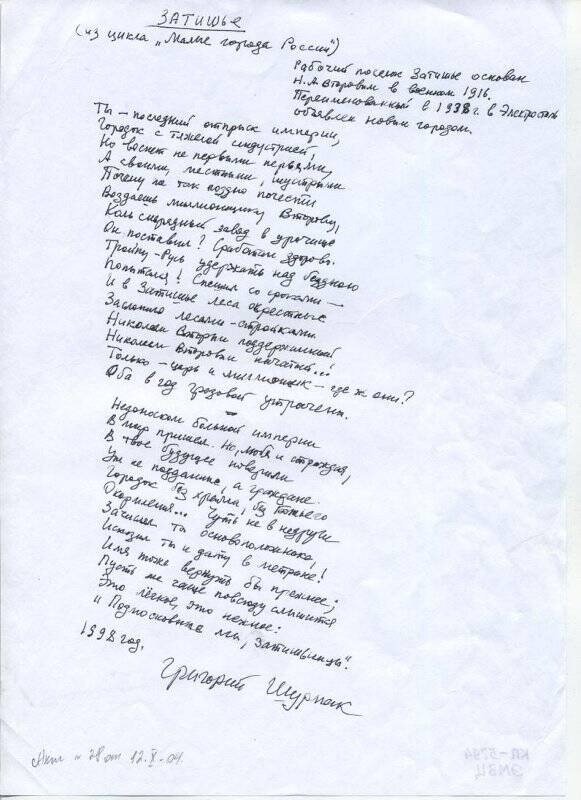 ЗАТИШЬЕ
(из цикла „Малые города России")
Рабочий поселок Затишье основан
Н.А. Второвым в военном 1916.
Переименованный в 1938 г. в Электросталь
объявлен новым городом.
Ты – последний отпрыск империи,
Городок с тяжелой индустрией!
Но воспет не первыми перьями,
А своими, местными, шустрыми
Почему ты так поздно почести
Воздаешь миллионщику Второву,
Коль снарядный завод в урочище
Он поставил? Сработал здорово.
Тройку-Русь удержать над бездною
Попытался! Спешил со сроками –
И в Затишье леса окрестные
Заслонило лесами-стройками.
Николаем Вторым поддержанный
Николаем Второвым начатый...!
Только – царь и миллионщик – где ж они?
Оба в год грозовой утрачены.
–
Недоноском больной империи
В мир пришел. Но, любя и страждая,
В твое будущее поверили
Уж не подданные, а граждане.
Городок без храма, без Божьего
Окормления... Чуть не в недруги
Зачислял ты основоположника,
Исказил ты и дату в метрике!
Имя тоже вернуть бы прежнее;
Пусть же чаще повсюду слышится
Это лёгкое, это нежное:
„Подмосковные мы, затишьинцы".
1998 год.
Григорий Шурмак
Акт № 28 от 12.X-04.
КП-5794
ЭМВЦ